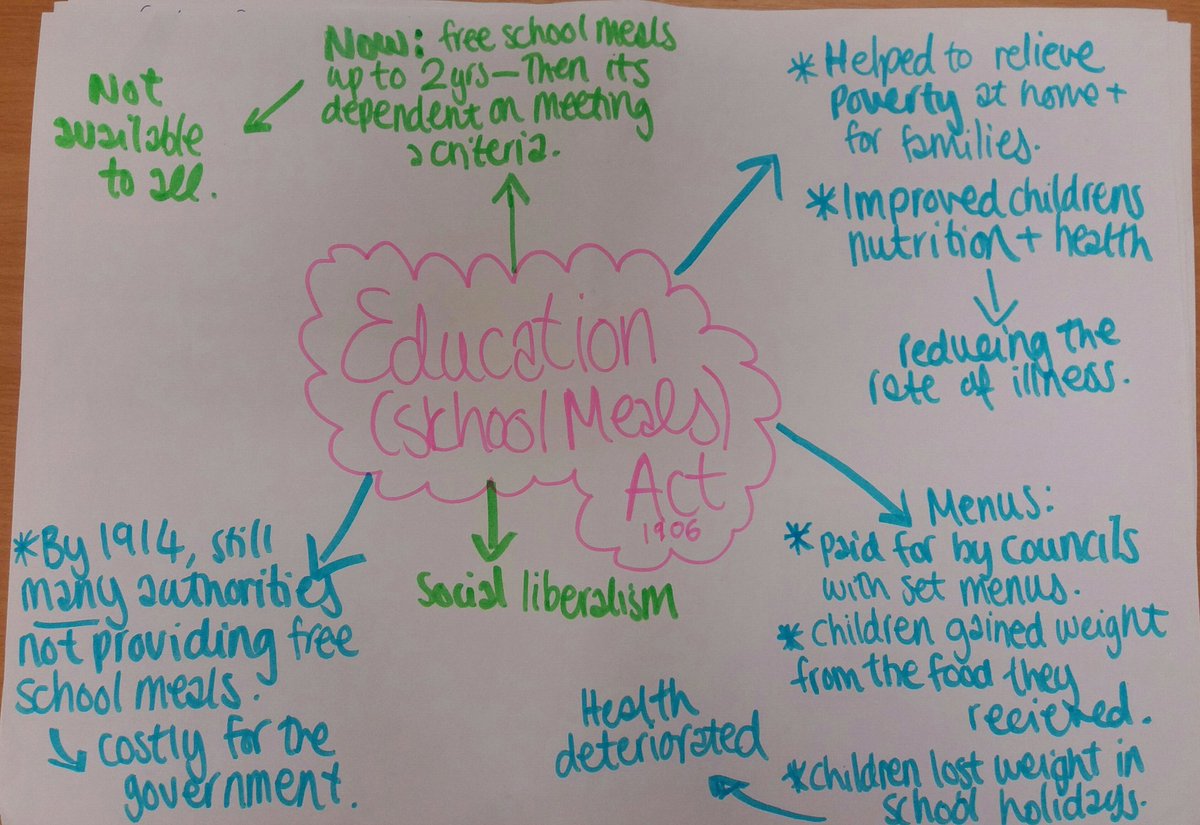 Education
(School Meals)
Act
1906
Now: free school meals
up to 2yrs—Then its
dependent on meeting
a criteria.
Not
available
to all.
* Helped to relieve
poverty at home +
for families.
* Improved childrens
nutrition + health
reducing the
rate of illness.
Menus:
* paid for by councils
with set menus.
* children gained weight
from the food they
recieved.
* children lost weight in
school holidays.
Health
deteriorated
Social liberalism
* By 1914, still
many authorities
not providing free
school meals.
costly for the
government.